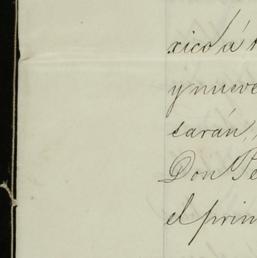 xico á
y nueve
sarán,
Don Pe
el prim